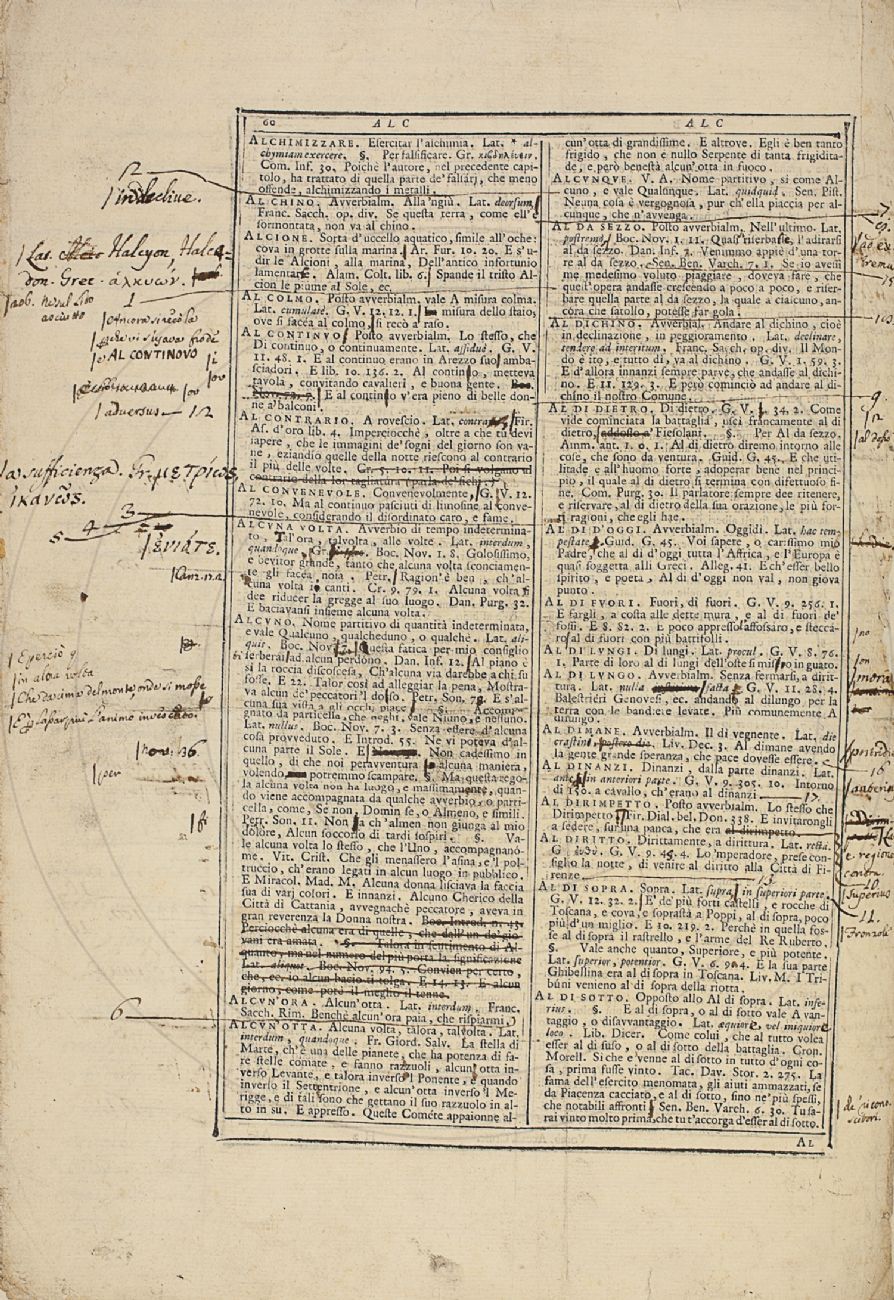 60 ALC ALC
ALCHIMIZZARE. Esercitar l'alchimia. Lat. * al-
chymiam exercere. §. Per falsificare. Gr.
Com. Inf. 30. Poichè l'autore, nel precedente capi-
tolo, ha trattato di quella parte de' falsarj, che meno
offende, alchimizzando i metalli.
AL CHINO. Avverbialm. Alla 'ngiù. Lat. deorsum
Franc. Sacch. op. div. Se questa terra, come ell'è
sormontata, non va al chino.
ALCIONE. Sorta d'uccello aquatico, simile all'oche:
cova in grotte sulla marina. Ar. Fur. 10. 20. E s'u-
dir le Alcioni, alla marina, Dell'antico infortunio
lamentare. Alam. Colt. lib. 6. Spande il tristo Al-
cion le piume al Sole, ec.
AL COLMO. Posto avverbialm. vale A misura colma.
Lat. cumulatè. G. V. 12. 12. 1. misura dello staio,
ove si facea al colmo, si recò a raso.
AL CONTINVO Posto avverbialm. Lo stesso, che
Di continuo, o continuamente. Lat. assiduè. G. V.
11. 48. 1. E al continuo erano in Arezzo suoi amba-
sciadori. E lib. 10. 136. 2. Al continuo, metteva
tavola, convitando cavalieri, e buona gente. Boc.
Nov. 72. 9. E al continuo v'era pieno di belle don-
ne a' balconi.
AL CONTRARIO. A rovescio. Lat. contra Fir.
As. d'oro lib. 4. Imperciocchè, oltre a che tu devi
sapere, che le immagini de' sogni del giorno son va-
ne, eziandio quelle della notte riescono al contrario
il più delle volte. Cr. 5. 10. 11. Poi si volgano al
contrario della lor tagliatura (parla de' fichi.)
AL CONVENEVOLE. Convenevolmente, G. V. 12.
72. 10. Ma al continuo pasciuti di limosine al conve-
nevole, considerando il disordinato caro, e fame.
ALCVNA VOLTA. Avverbio di tempo indetermina-
to, Tal'ora, talvolta, alle volte. Lat. interdum,
quandoque, Gr. Boc. Nov. 1. 8. Golosissimo,
e bevitor grande, tanto che alcuna volta sconciamen-
te gli facea noia. Petr. Ragion'è ben, ch'al-
cuna volta i' canti. Cr. 9. 79. 1. Alcuna volta
dee riducer la gregge al suo luogo. Dan. Purg. 32.
E baciavansi insieme alcuna volta.
ALCVNO. Nome partitivo di quantità indeterminata,
e vale Qualcuno, qualcheduno, o qualchè. Lat. ali-
quis. Boc. Nov. Questa fatica per mio consiglio
ti serberai ad alcun perdono. Dan. Inf. 12. Al piano è
sì la roccia discoscesa, Ch'alcuna via darebbe a chi su
fosse. E 22. Talor così ad alleggiar la pena, Mostra-
va alcun de' peccatori 'l dosso. Petr. Son. 78. E s'al-
cuna sua vista a gli occhi piace §. Accompa-
gnato da particella, che neghi, vale Niuno, e nessuno.
Lat. nullus. Boc. Nov. 7. 3. Senza essere d'alcuna
cosa provveduto. E Introd. 55. Ne vi poteva d'al-
cuna parte il Sole. E Non cadessimo in
quello, di che noi peravventura alcuna maniera,
volendo, potremmo scampare. §. Ma questa rego-
la alcuna volta non ha luogo, e massimamente, quan-
do viene accompagnata da qualche avverbio, o parti-
cella, come, Se non, Domin se, o Almeno, e simili.
Petr. Son. 11. Non fia ch'almen non giunga al mio
dolore, Alcun soccorso di tardi sospiri. §. Va-
le alcuna volta lo stesso, che l'Vno, accompagnano-
me. Vit. Crist. Che gli menassero l'asina, e 'l pol-
truccio, ch'erano legati in alcun luogo in pubblico.
E Miracol. Mad. M. Alcuna donna lisciava la faccia
sua di varj colori. E innanzi. Alcuno Cherico della
Città di Cattania, avvegnachè peccatore, aveva in
gran reverenza la Donna nostra. Boc. Introd. n. 43.
Perciocchè alcuna era di quelle, che dall'un de' gio-
vani era amata. §. Talora in sentimento di Al-
quanto, ma nel numero del più porta la significazione
Lat. aliquot. Boc. Nov. 94. 5. Convien per certo,
che, ec. io alcun bacio ti tolga. E 14. 13. E alcun
giorno, come potè il meglio il tenne.
ALCVN'ORA. Alcun'otta. Lat. interdum. Franc.
Sacch. Rim. Benchè alcun'ora paia, che risparmi.
ALCVN'OTTA. Alcuna volta, talora, talvolta. Lat.
interdum, quandoque. Fr. Giord. Salv. La stella di
Marte, ch'è una delle pianete, che ha potenza di fa-
re stelle comate, e fanno razzuoli, alcun'otta in-
verso Levante, e talora inverso 'l Ponente, e quando
inverso il Settentrione, e alcun'otta inverso 'l Me-
rigge, e di tali sono che gettano il suo razzuolo in al-
to in su. E appresso. Queste Comete appaionne al-
cun'otta di grandissime. E altrove. Egli è ben tanto
frigido, che non è nullo Serpente di tanta frigidita-
de, e però benestà alcun'otta in fuoco.
ALCVNQVE. V. A. Nome partitivo, sì come Al-
cuno, e vale Qualunque. Lat. quidquid. Sen. Pist.
Neuna cosa è vergognosa, pur ch'ella piaccia per al-
cunque, che n'avvenga.
AL DA SEZZO. Posto avverbialm. Nell'ultimo. Lat.
postremò. Boc. Nov. 1. 11. Quasi riserbasse, l'adirarsi
al da sezzo. Dan. Inf. 7. Venimmo appiè d'una tor-
re al da sezzo. Sen. Ben. Varch. 7. 1. Se io avessi
me medesimo voluto piaggiare, doveva fare, che
quest'opera andasse crescendo a poco a poco, e riser-
bare quella parte al da sezzo, la quale a ciascuno, anc-
cora che satollo, potesse far gola.
AL DICHINO. Avverbial. Andare al dichino, cioè
in declinazione, in peggioramento. Lat. declinare,
tendere ad interitum. Franc. Sacch. op. div. Il Mon-
do è ito, e tutto dì, va al dichino. G. V. 1. 59. 3.
E d'allora innanzi sempre parve, che andasse al dichi-
no. E 11. 129. 3. E però cominciò ad andare al di-
chino il nostro Comune.
AL DI DIETRO. Di dietro. G. V. 34. 2. Come
vide cominciata la battaglia, uscì francamente al di
dietro, addosso a' Fiesolani. §. Per Al da sezzo.
Amm. ant. 1. 0. 1. Al di dietro diremo intorno alle
cose, che sono da vergognare. Guid. G. 45. E che uti-
litade è all'huomo forte, adoperar bene nel princi-
pio, il quale al di dietro si termina con difettuoso fi-
ne. Com. Purg. 30. Il parlatore sempre dee ritenere,
e riservare, al di dietro della sua orazione, le più for-
ti ragioni, che egli hae.
AL DI D'OGGI. Avverbialm. Oggidì. Lat. hac tem-
pestate. Guid. G. 45. Voi sapere, o carissimo mio
Padre, che al dì d'oggi tutta l'Affrica, e l'Europa è
quasi soggetta alli Greci. Alleg. 41. E ch'esser bello
spirito, e poeta, Al dì d'oggi non val, non giova
punto.
AL DI FVORI. Fuori, di fuori. G. V. 9. 256. 1.
E fargli, a costa alle dette mura, e al di fuori de'
fossi. E 8. 82. 2. E poco appresso affossaro, e stecca-
ro al di fuori con più battifolli.
AL DI LVNGI. Di lungi. Lat. procul. G. V. 8. 76.
1. Parte di loro al di lungi dell'oste si misero in guato.
AL DI LVNGO. Avverbialm. Senza fermarsi, a dirit-
tura. Lat. nulla facta G. V. 11. 28. 4.
Balestrieri Genovesi, ec. andando al dilungo per la
terra con le bandiere levate. Più comunemente A
dirungo.
AL DIMANE. Avverbialm. Il dì vegnente. Lat. die
crastino, postero die. Liv. Dec. 3. Al dimane avendo
la gente grande speranza, che pace dovesse essere.
AL DINANZI. Dinanzi, dalla parte dinanzi. Lat.
ante, in anteriori parte. G. V. 9. 305. 10. Intorno
di 150. a cavallo, ch'erano al dinanzi
AL DIRIMPETTO. Posto avverbialm. Lo stesso che
Dirimpetto. Fir. Dial. bel. Don. 338. E invitarongli
a sedere, sur una panca, che era al dirimpetto.
AL DIRITTO. Dirittamente, a dirittura. Lat. recta.
G. V. 9. 45. 4. Lo 'mperadore, prese con-
siglio la notte, di venire al diritto alla Città di Fi-
renze.
AL DI SOPRA. Sopra. Lat. supra, in superiori parte.
G. V. 12. 32. 2. E' de' più forti castelli, e rocche di
Toscana, e cova, e soprastà a Poppi, al di sopra, poco
più d'un miglio. E 10. 219. 2. Perchè in quella fos-
se al di sopra il rastrello, e l'arme del Re Ruberto.
§. Vale anche quanto, Superiore, e più potente.
Lat. superior, potentior. G. V. 6. 90. 4. E la sua parte
Ghibellina era al di sopra in Toscana. Liv. M. I Tri-
buni venieno al di sopra della riotta.
AL DI SOTTO. Opposto allo Al di sopra. Lat. infe-
rius. §. E al di sopra, o al di sotto vale A van-
taggio, o disavvantaggio. Lat. æquiore, vel iniquiore
loco. Lib. Dicer. Come colui, che al tutto volea
esser al di suso, o al di sotto della battaglia. Cron.
Morell. Sì che e venne al di sotto in tutto d'ogni co-
sa, prima fusse vinto. Tac. Dav. Stor. 2. 275. La
fama dell'esercito menomata, gli aiuti ammazzati, se
da Piacenza cacciato, e al di sotto, sino ne' più spessi,
che notabili affronti Sen. Ben. Varch. 6. 30. Tu sa-
rai vinto molto prima, che tu t'accorga d'esser al di sotto.
AL
2
Las. Halcyon, Halce-
don. Grec. ἀλκυών.
1
AL CONTINOVO
adversus 12
la sufficienza. Gr. μετρίως,
ἱκανῶς.
3
4
5
ἐνιότε.
nov. 36
per
6
7
15
9
12
no
16
17
13
10
Superius
11